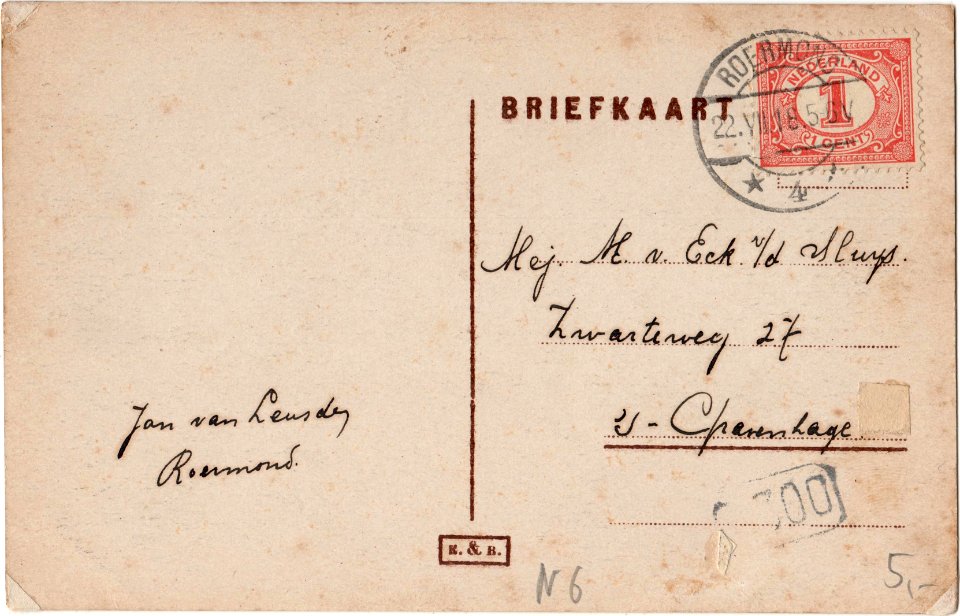 BRIEFKAART
ROERMOND
22.VII.18 5-6V
4
NEDERLAND
1
1 CENT
Mej. M. v. Eck v/d Sluys.
Zwarteweg 27
's-Gravenhage
Jan van Leusden
Roermond.
K. & B.
N 6
5,-